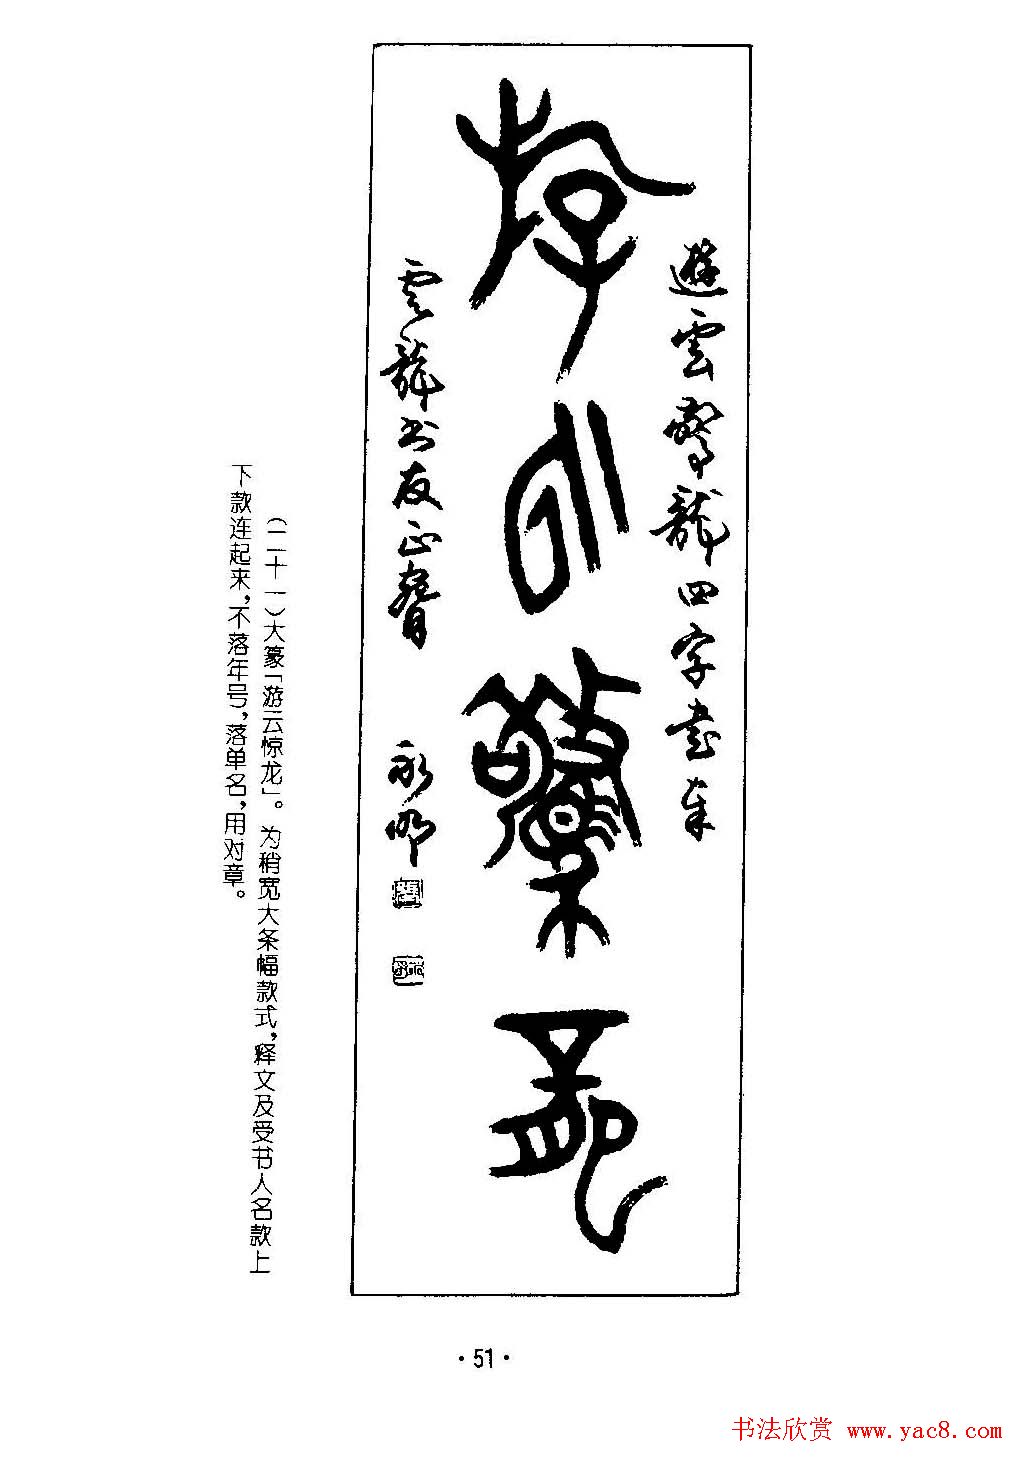 游云驚龍
遊雲驚龍四字書奉
雲龍书友正腎
永明
（二十一）大篆「游云惊龙」。为稍宽大条幅款式，释文及受书人名款上
下款连起来，不落年号，落单名，用对章。
·51·
书法欣赏 www.yac8.com